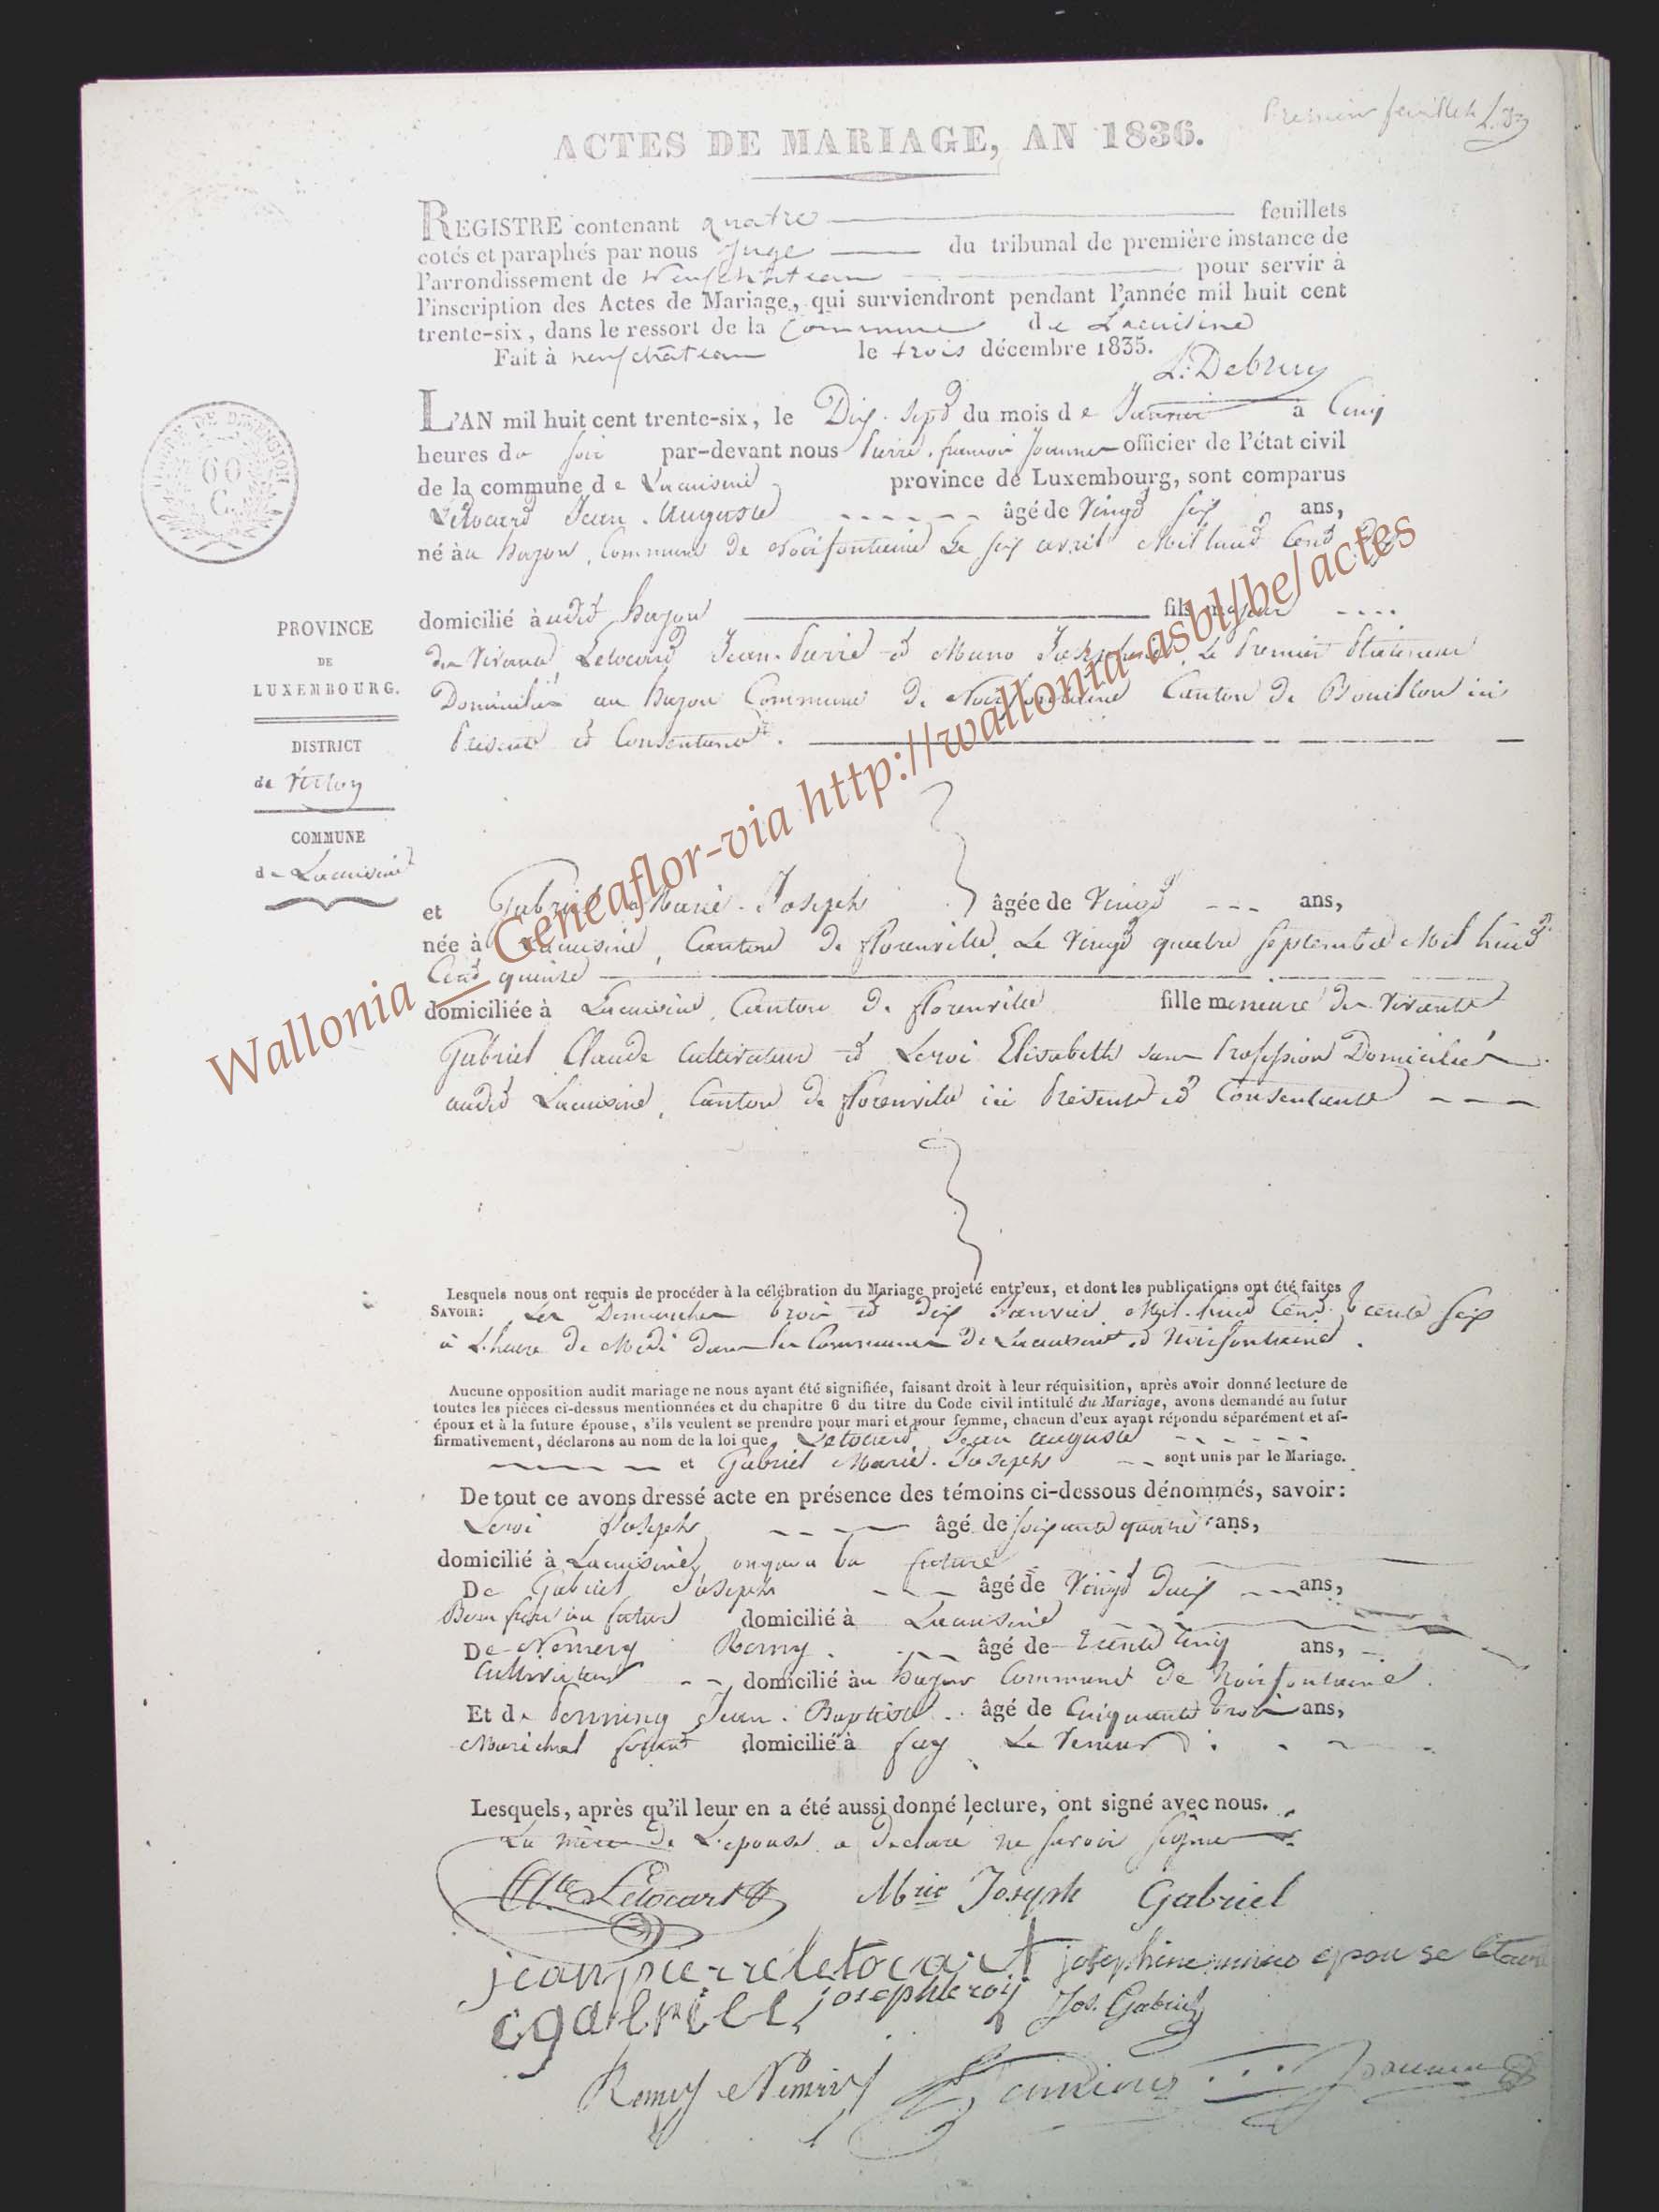 Premier feuillet
ACTES DE MARIAGE, AN 1836.
REGISTRE contenant quatre feuillets
cotés et paraphés par nous Juge du tribunal de première instance de
l'arrondissement de Neufchâteau pour servir à
l'inscription des Actes de Mariage, qui surviendront pendant l'année mil huit cent
trente-six, dans le ressort de la Commune de Lacuisine
Fait à neufchâteau le trois décembre 1835.
L'AN mil huit cent trente-six, le Dix-sept du mois de Janvier à Cinq
heures du soir par-devant nous Pierre françois officier de l'état civil
de la commune de Lacuisine province de Luxembourg, sont comparus
Létocard Jean Auguste âgé de Vingt six ans,
né au hazou, Commune de Noirfontaine Le six avril Mil huit Cent
domicilié audit hazou fils majeur
des Vivants Létocard Jean-Pierre et Muno Josephine, Le Premier
Domiciliés au hazou Commune de Noirfontaine Canton de Bouillon ici
Présents et Consentants.
PROVINCE
DE
LUXEMBOURG.
DISTRICT
de Virton
COMMUNE
de Lacuisine
et Gabriel Marie-Joseph âgée de Vingt ans,
née à Lacuisine, Canton de florenville, Le Vingt quatre Septembre Mil huit
Cent quinze
domiciliée à Lacuisine, Canton de florenville fille mineure des Vivants
Gabriel Claude Cultivateur et Leroi Elisabeth sans Profession Domiciliés
audit Lacuisine, Canton de florenville ici Présents et Consentants
Lesquels nous ont requis de procéder à la célébration du Mariage projeté entr'eux, et dont les publications ont été faites
SAVOIR: Les Dimanches trois et dix Janvier Mil huit Cent trente Six
à L'heure de Midi dans les Communes de Lacuisine et Noirfontaine.
Aucune opposition audit mariage ne nous ayant été signifiée, faisant droit à leur réquisition, après avoir donné lecture de
toutes les pièces ci-dessus mentionnées et du chapitre 6 du titre du Code civil intitulé du Mariage, avons demandé au futur
époux et à la future épouse, s'ils veulent se prendre pour mari et pour femme, chacun d'eux ayant répondu séparément et af-
firmativement, déclarons au nom de la loi que Létocard Jean auguste
et Gabriel Marie-Joseph sont unis par le Mariage.
De tout ce avons dressé acte en présence des témoins ci-dessous dénommés, savoir:
Leroi Joseph âgé de soixante quatre ans,
domicilié à Lacuisine, la future
De Gabriel Joseph âgé de Vingt Deux ans,
Beau frère au futur domicilié à Lacuisine
De Nemery Remy âgé de trente Cinq ans,
Cultivateur domicilié au hazou Commune de Noirfontaine.
Et de Jean-Baptiste âgé de Cinquante trois ans,
Maréchal ferrant domicilié à fay Le Veneur.
Lesquels, après qu'il leur en a été aussi donné lecture, ont signé avec nous.
La mère de L'épouse a déclaré ne savoir signer
Létocart Mrie Joseph Gabriel
jeanpierreletocart josephine muno epouse
cgabriel josephleroy Jos. Gabriel
Remy Nemery
Wallonia _ Généaflor-via http://wallonia-asbl/be/actes
60
C.